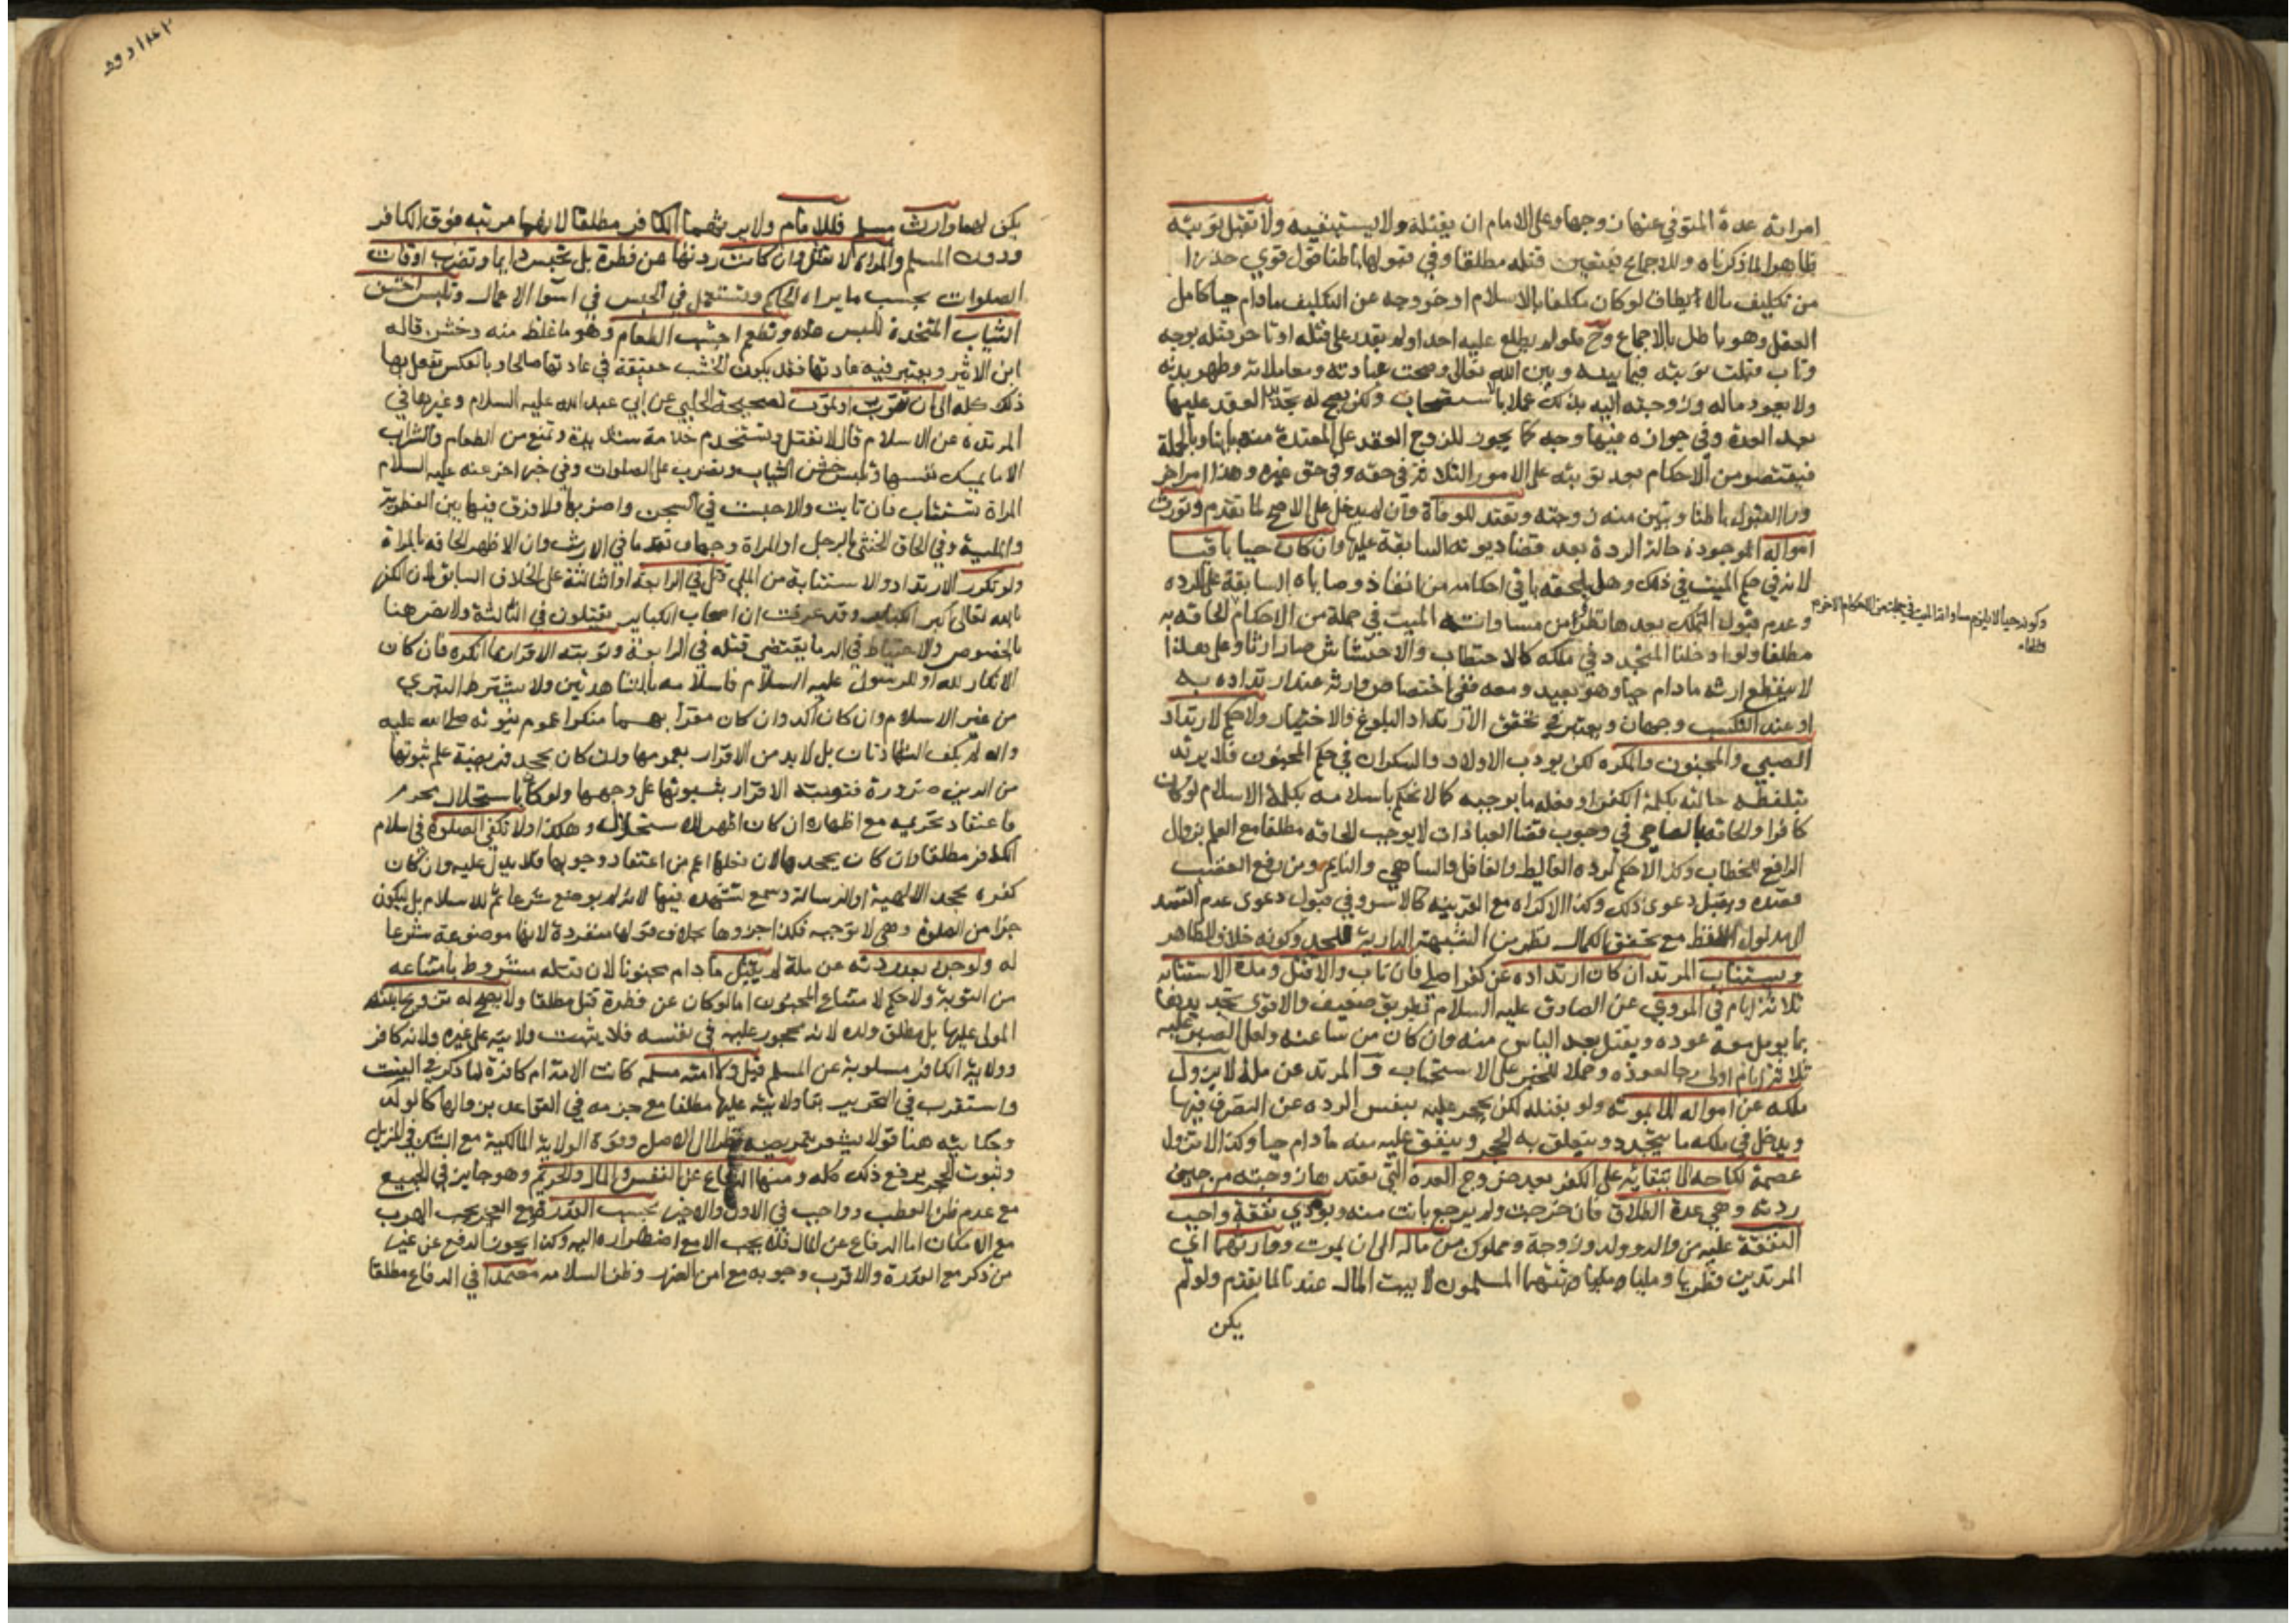 امراته عدة المتوفى عنها زوجها وعلى الامام ان يقتله ولا يستتيبه ولا تقبل توبته
ظاهرا لما ذكرناه وللاجماع فيتعين قتله مطلقا وفي قبولها باطنا قول قوي حذرا
من تكليف ما لا يطاق لو كان مكلفا بالاسلام او خروجه عن التكليف ما دام حيا كامل
العقل وهو باطل بالاجماع وح فلو لم يطلع عليه احد او لم يقدر على قتله او تاخر قتله بوجه
وتاب قبلت توبته فيما بينه وبين الله تعالى وصحت عباداته ومعاملاته وطهر بدنه
ولا يعود ماله وزوجته اليه بذلك عملا بالاستصحاب ولكن يصح له تجديد العقد عليها
بعد العدة وفي جوازه فيها وجه كما يجوز للزوج العقد على المعتدة منه باينا وبالجملة
فيقتصر من الاحكام بعد توبته على الامور الثلاثة في حقه وفي حق غيره وهذا امر اخر
وراء القبول باطنا وتبين منه زوجته وتعتد للوفاة وان لم يدخل على الاصح لما تقدم وتورث
امواله الموجودة حالة الردة بعد قضاء ديونه السابقة عليها وان كان حيا باقيا
لانه في حكم الميت في ذلك وهل يلحقه باقي احكامه من انفاذ وصاياه السابقة على الردة
وعدم قبول التملك بعدها نظر من مساواته الميت في جملة من الاحكام فالحاقه به
وكونه حيا لا يلزم مساواته الميت في جملة من الاحكام الاخرى
مطلقا ولو ادخلنا المتجدد في ملكه كالاحتطاب والاحتشاش صار ارثا وعلى هذا
لا ينقطع ارثه ما دام حيا وهو بعيد ومعه ففي اختصاص وارثه عند ارتداده به
او عند التكسب وجهان ويعتبر في تحقق الارتداد البلوغ والاختيار ولا حكم لارتداد
الصبي والمجنون والمكره لكن يؤدب الاولان والسكران في حكم المجنون فلا يرتد
بتلفظه حالته بكلمة الكفر او فعله ما يوجبه كما لا يحكم باسلامه بكلمة الاسلام لو كان
كافرا والحاقه بالصاحي في وجوب قضاء العبادات لا يوجب الحاقه مطلقا مع العلم بزوال
الرافع للخطاب وكذا لا حكم لردة الغالط والغافل والساهي والنايم ومن رفع الغضب
قصده ويقبل دعوى ذلك وكذا الاكراه مع القرينة كالاسر وفي قبول دعوى عدم القصد
الى مدلول اللفظ مع تحقق الكمال نظر من الشبهة الدارئة للحد وكونه خلاف الظاهر
ويستتاب المرتد ان كان ارتداده عن كفر اصلي فان تاب والا قتل ومدة الاستتابة
ثلاثة ايام في المروي عن الصادق عليه السلام بطريق ضعيف والاقوى تحديدها
بما يؤمل معه عوده ويقتل بعد الياس منه وان كان من ساعته ولعل الصبر عليه
ثلاثة ايام اولى رجاء لعوده وحملا للخبر على الاستحباب و المرتد عن ملة لا يزول
ملكه عن امواله الا بموته ولو بقتله لكن يحجر عليه بنفس الردة عن التصرف فيها
ويدخل في ملكه ما يتجدد ويتعلق به الحجر وينفق عليه منه ما دام حيا وكذا لا تزول
عصمة نكاحه الا ببقائه على الكفر بعد خروج العدة التي تعتدها زوجته من حين
ردته وهي عدة الطلاق فان خرجت ولم يرجع بانت منه ويؤدي نفقة واجب
النفقة عليه من والد وولد وزوجة ومملوك من ماله الى ان يموت ووارثهما اي
المرتدين فطريا ومليا ورثتهما المسلمون لا بيت المال عندنا لما تقدم ولو لم
يكن
يكن لهما وارث مسلم فللامام ولا يرثهما الكافر مطلقا لانهما مرتبة فوق الكافر
ودون المسلم والمراة لا تقتل وان كانت ردتها عن فطرة بل تحبس دايما وتضرب اوقات
الصلوات بحسب ما يراه الحاكم وتستعمل في الحبس في اسوا الاعمال وتلبس اخشن
الثياب المتخذة للبس عادة وتطعم اجشب الطعام وهو ما غلظ منه وخشن قاله
ابن الاثير ويعتبر فيه عادتها فقد يكون الجشب حقيقة في عادتها صالحا وبالعكس تفعل بها
ذلك كله الى ان تتوب او تموت لصحيحة الحلبي عن ابي عبد الله عليه السلام وغيرها في
المرتدة عن الاسلام قال لا تقتل وتستخدم خدمة شديدة وتمنع من الطعام والشراب
الا ما يمسك نفسها وتلبس خشن الثياب وتضرب على الصلوات وفي خبر اخر عنه عليه السلام
المراة تستتاب فان تابت والا حبست في السجن واضر بها ولا فرق فيها بين الفطرية
والملية وفي الحاق الخنثى بالرجل او المراة وجهان تقدما في الارث وان الاظهر الحاقه بالمراة
ولو تكرر الارتداد والاستتابة من الملي قتل في الرابعة او الثالثة على الخلاف السابق لان الكفر
بالله تعالى اكبر الكباير وقد عرفت ان اصحاب الكباير يقتلون في الثالثة ولا نص هنا
بالخصوص والاحتياط في الدماء يقتضي قتله في الرابعة وتوبته الاقرار بما انكره فان كان
الانكار لله او للرسول عليه السلام فاسلامه بالشهادتين ولا يشترط التبري
من غير الاسلام وان كان اكد وان كان مقرا بهما منكرا عموم نبوته صلى الله عليه
واله لم يكف الشهادتان بل لا بد من الاقرار بعمومها وان كان بجحد فريضة علم ثبوتها
من الدين ضرورة فتوبته الاقرار بثبوتها على وجهها ولو كان باستحلال محرم
فاعتقاد تحريمه مع اظهاره ان كان اظهر الاستحلال وهكذا ولا تكفي الصلوة في اسلام
الكافر مطلقا وان كان يجحدها لان فعلها اعم من اعتقاد وجوبها فلا يدل عليه وان كان
كفره بجحد الالهية او الرسالة وسمع تشهده فيها لانه لم يوضع شرعا ثم للاسلام بل ليكون
جزءا من الصلوة وهي لا توجبه فكذا جزؤها بخلاف قولها منفردة لانها موضوعة شرعا
له ولو جن بعد ردته عن ملة لم يقتل ما دام مجنونا لان قتله مشروط بامتناعه
من التوبة ولا حكم لامتناع المجنون اما لو كان عن فطرة قتل مطلقا ولا يصح له تزويج ابنته
المولى عليها بل مطلق ولده لانه محجور عليه في نفسه فلا يثبت ولايته على غيره ولانه كافر
وولاية الكافر مسلوبة عن المسلم قيل وكا امته مسلمة كانت الامة ام كافرة لما ذكر في البنت
واستقرب في التحرير بقاء ولايته عليها مطلقا مع جزمه في القواعد بزوالها كالولد
وحكايته هنا قولا يشعر بتمريضه نظرا الى الاصل وقوة الولاية المالكية مع الشك في المزيل
وثبوت الحجر يرفع ذلك كله ومنها الدفاع عن النفس والمال والحريم وهو جايز في الجميع
مع عدم ظن العطب وواجب في الاول والاخير بحسب القدرة ومع العجز يجب الهرب
مع الامكان اما الدفاع عن المال فلا يجب الا مع اضطراره اليه وكذا يجوز الدفع عن غير
من ذكر مع القدرة والاقرب وجوبه مع امن الضرر وظن السلامة معتمدا في الدفاع مطلقا